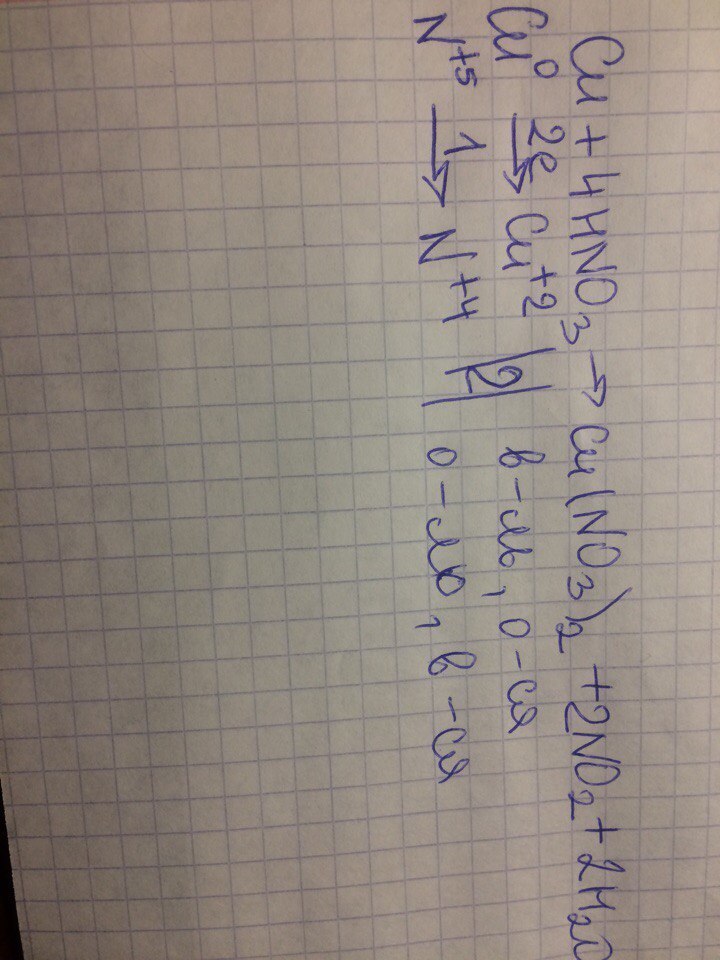 Cu + 4HNO3 → Cu(NO3)2 + 2NO2 + 2H2O
Cu0 2e → Cu+2 | в-ль, о-ся
N+5 1 → N+4 |2| о-ль, в-ся